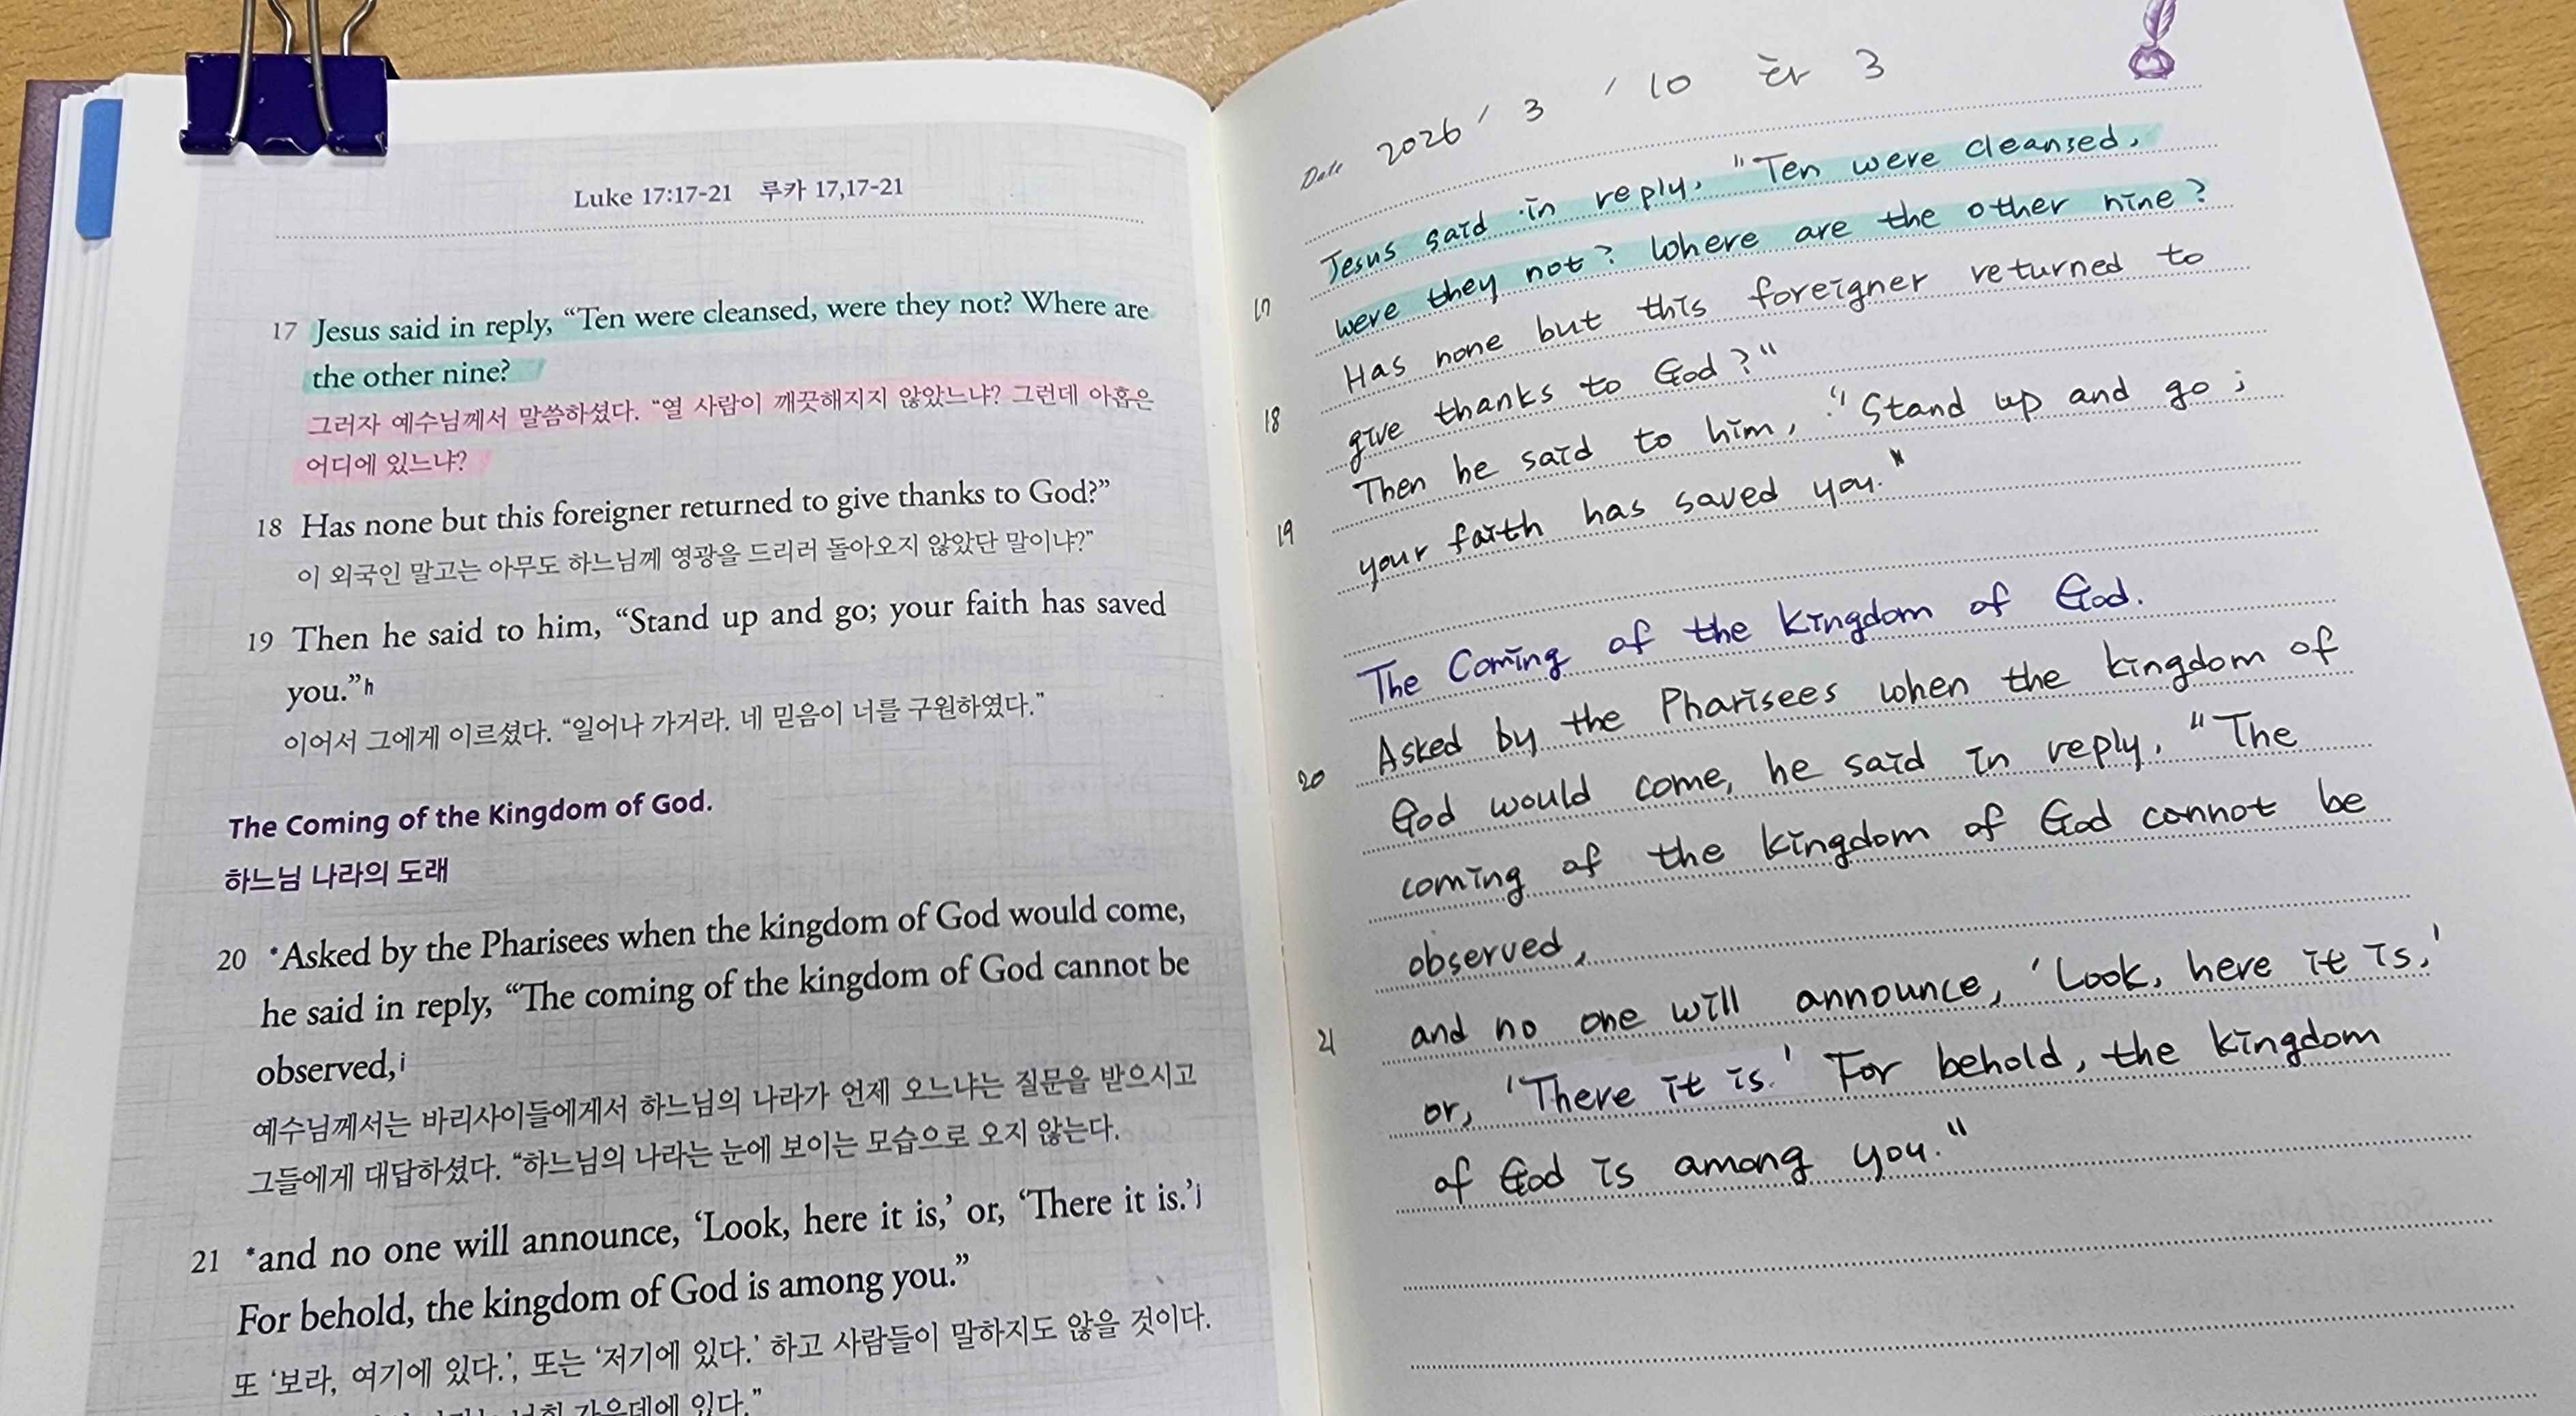 Luke 17:17-21 루카 17,17-21
17 Jesus said in reply, “Ten were cleansed, were they not? Where are
the other nine?
그러자 예수님께서 말씀하셨다. “열 사람이 깨끗해지지 않았느냐? 그런데 아홉은
어디에 있느냐?
18 Has none but this foreigner returned to give thanks to God?”
이 외국인 말고는 아무도 하느님께 영광을 드리러 돌아오지 않았단 말이냐?”
19 Then he said to him, “Stand up and go; your faith has saved
you.”h
이어서 그에게 이르셨다. “일어나 가거라. 네 믿음이 너를 구원하였다.”
The Coming of the Kingdom of God.
하느님 나라의 도래
20 *Asked by the Pharisees when the kingdom of God would come,
he said in reply, “The coming of the kingdom of God cannot be
observed,i
예수님께서는 바리사이들에게서 하느님의 나라가 언제 오느냐는 질문을 받으시고
그들에게 대답하셨다. “하느님의 나라는 눈에 보이는 모습으로 오지 않는다.
21 *and no one will announce, ‘Look, here it is,’ or, ‘There it is.’j
For behold, the kingdom of God is among you.”
또 ‘보라, 여기에 있다.’, 또는 ‘저기에 있다.’ 하고 사람들이 말하지도 않을 것이다.
가운데에 있다.”
Date 2026 / 3 / 10 화 3
17 Jesus said in reply, "Ten were cleansed,
were they not? Where are the other nine?
18 Has none but this foreigner returned to
give thanks to God?"
19 Then he said to him, "Stand up and go;
your faith has saved you."
The Coming of the Kingdom of God.
20 Asked by the Pharisees when the kingdom of
God would come, he said in reply, "The
coming of the kingdom of God cannot be
observed,
21 and no one will announce, 'Look, here it is,'
or, 'There it is.' For behold, the kingdom
of God is among you."